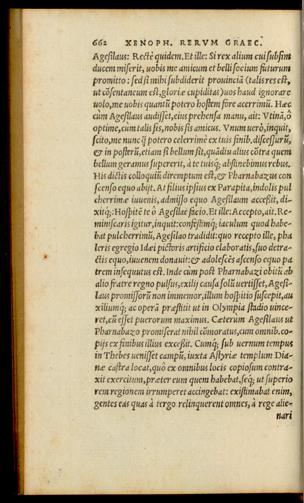 662 XENOPH. RERVM GRAEC.
Agesilaus: Rectè quidem. Et ille: Si rex alium cui subsim
ducem miserit, uobis me amicum et belli socium futurum
promitto: sed si mihi subdiderit prouinciã (talis res est,
ut cõsentaneum est, gloriæ cupiditas) uos haud ignorare
uolo, me uobis quantũ potero hostem fore acerrimũ. Hæc
cùm Agesilaus audisset, eius prehensa manu, ait: Vtinã, ô
optime, cùm talis sis, nobis sis amicus. Vnum uerò, inquit,
scito, me nunc q̃ potero celerrimè ex tuis finib. discessurũ,
& in posterũ, etiam si bellum sit, quãdiu alius cõtra quem
bellum geramus supererit, à te tuisq; abstinebimus rebus.
His dictis colloquiũ diremptum est, & Pharnabazus con
scenso equo abijt. At filius ipsius ex Parapita, indolis pul
cherrimæ iuuenis, admisso equo Agesilaum accessit, di-
xitq;: Hospitẽ te ô Agesilae facio. Et ille: Accepto, ait. Re-
miniscaris igitur, inquit: confestimq; iaculum quod habe-
bat pulcherrimũ, Agesilao tradidit: quo recepto ille, pha
leris egregio Idæi pictoris artificio elaboratis, suo detra-
ctis equo, iuuenem donauit: & adolescẽs ascenso equo pa
trem insequutus est. Inde cùm post Pharnabazi obitũ ab
alio fratre regno pulsus, exilij causa solũ uertisset, Agesi-
laus promissorũ non immemor, illum hospitio suscepit, au
xiliumq; ac operã præstitit ut in Olympia stadio uince-
ret, cũ esset puerorum maximus. Cæterum Agesilaus ut
Pharnabazo promiserat nihil cõmoratus, cum omnib. co-
pijs ex finibus illius excessit. Cumq; sub uernum tempus
in Thebes uenisset campũ, iuxta Astyriæ templum Dia-
næ castra locat, quò ex omnibus locis copiosum contra-
xit exercitum, præter eum quem habebat, seq; ut superio
rem regionem irrumperet accingebat: existimabat enim,
gentes eas quas à tergo relinquerent omnes, à rege alie-
nari